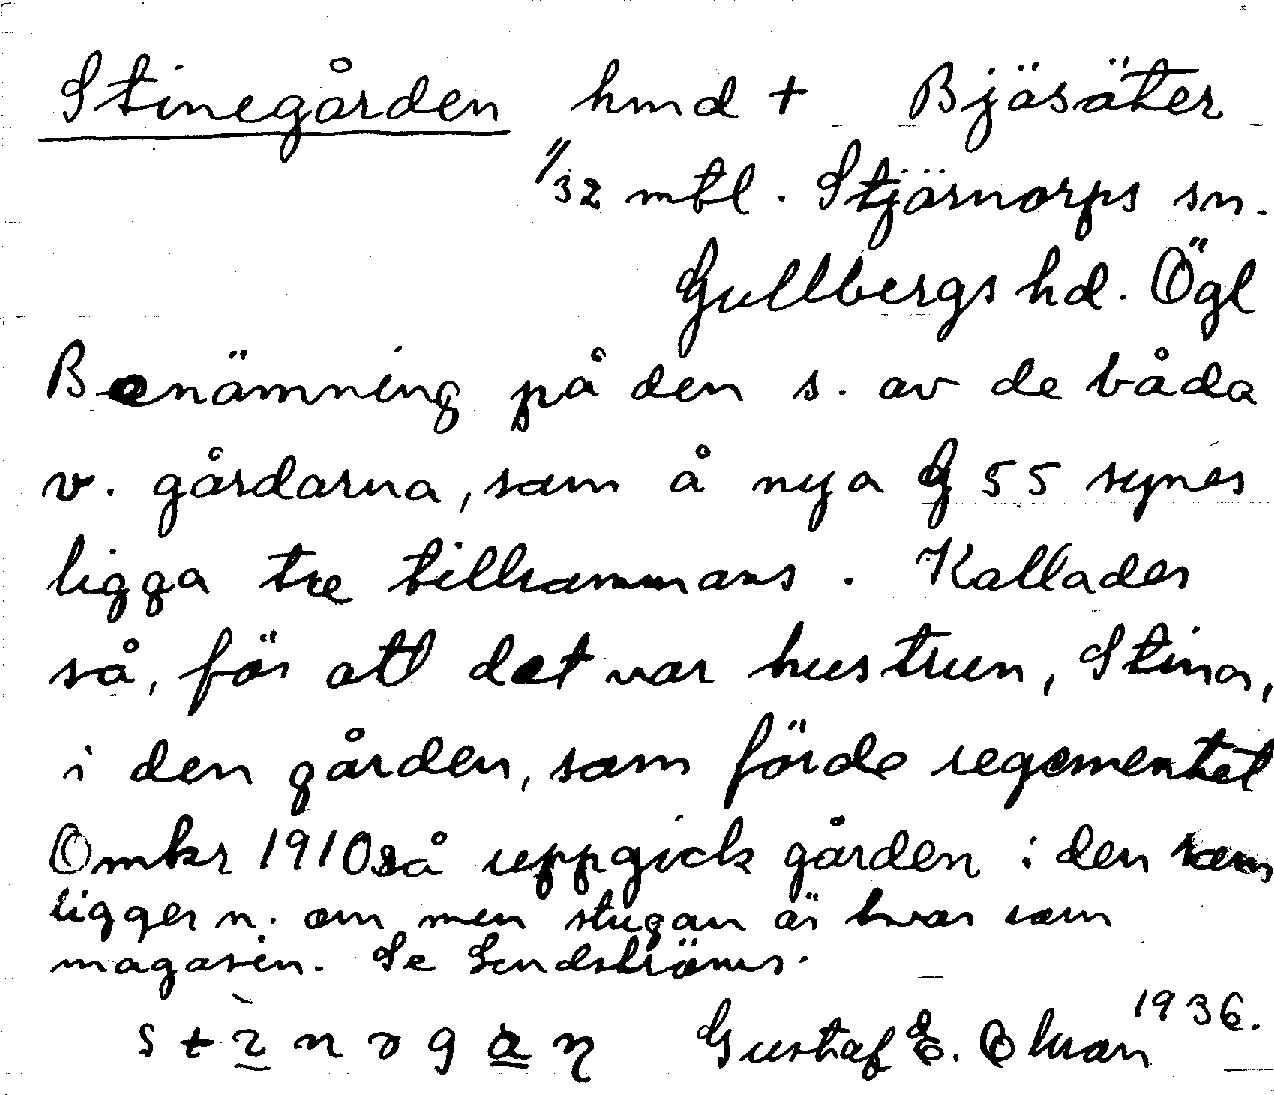 Stinegården hmd + Bjäsäter
1/32 mtl. Stjärnorps sn.
Gullbergs hd. Ögl
Benämning på den s. av de båda
v. gårdarna, som å nya G 55 synes
ligga tre tillsammans. Kallades
så, för att det var hustrun, Stina,
i den gården, som förde regementet
Omkr 1910 så uppgick gården i den som
ligger n. om men stugan är kvar som
magasin. Se
Gustaf E. Olsson 1936.